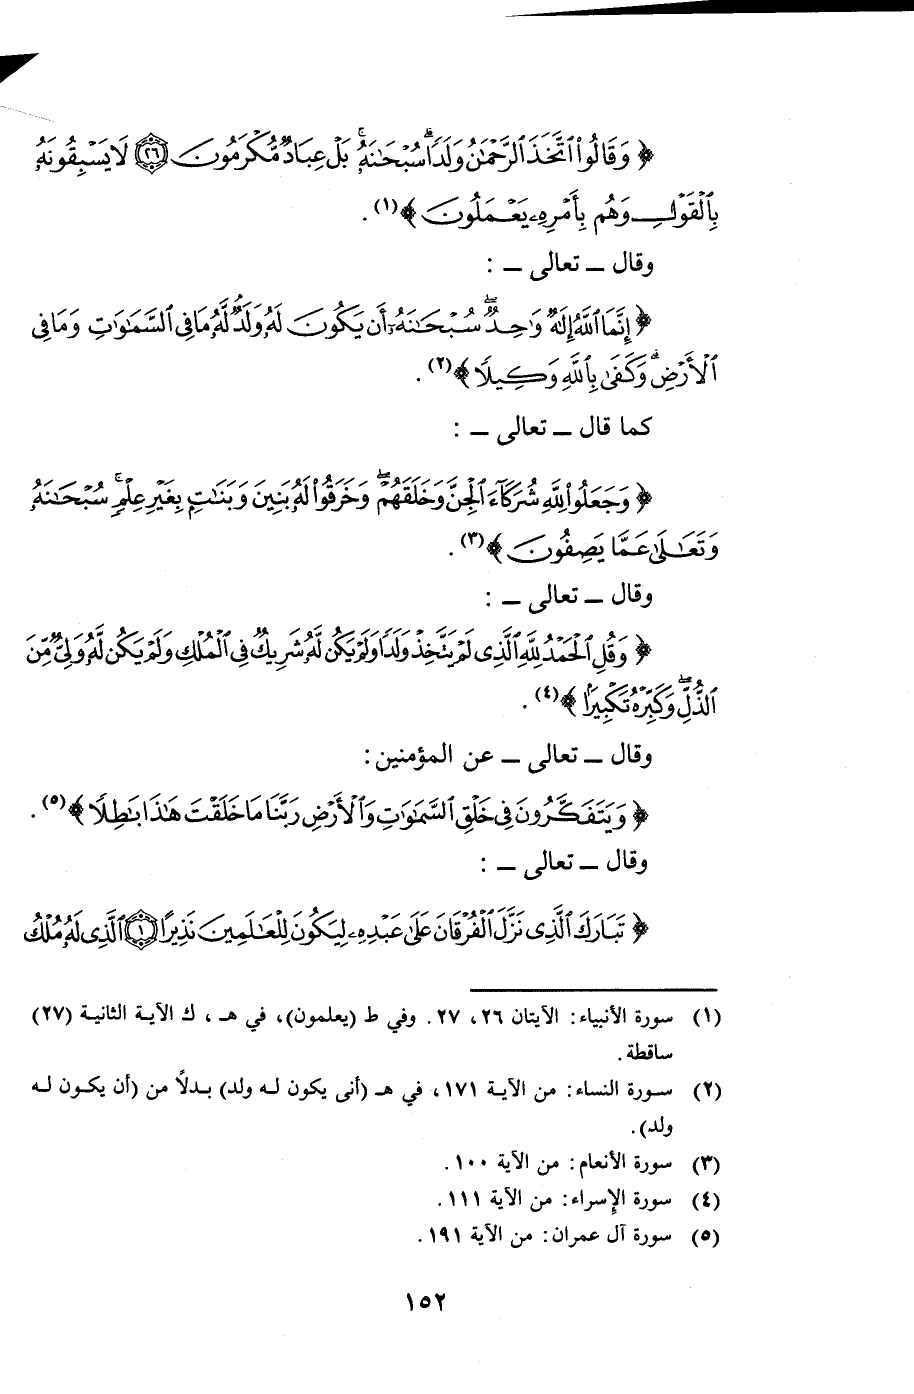 ﴿ وَقَالُوا۟ ٱتَّخَذَ ٱلرَّحْمَٰنُ وَلَدًا ۗ سُبْحَٰنَهُۥ ۚ بَلْ عِبَادٌ مُّكْرَمُونَ ٢٦ لَا يَسْبِقُونَهُۥ
بِٱلْقَوْلِ وَهُم بِأَمْرِهِۦ يَعْمَلُونَ ﴾(١) .
وقال ــ تعالى ــ :
﴿ إِنَّمَا ٱللَّهُ إِلَٰهٌ وَٰحِدٌ ۖ سُبْحَٰنَهُۥٓ أَن يَكُونَ لَهُۥ وَلَدٌ ۘ لَّهُۥ مَا فِى ٱلسَّمَٰوَٰتِ وَمَا فِى
ٱلْأَرْضِ ۗ وَكَفَىٰ بِٱللَّهِ وَكِيلًا ﴾(٢) .
كما قال ــ تعالى ــ :
﴿ وَجَعَلُوا۟ لِلَّهِ شُرَكَآءَ ٱلْجِنَّ وَخَلَقَهُمْ ۖ وَخَرَقُوا۟ لَهُۥ بَنِينَ وَبَنَٰتٍۭ بِغَيْرِ عِلْمٍ ۚ سُبْحَٰنَهُۥ
وَتَعَٰلَىٰ عَمَّا يَصِفُونَ ﴾(٣) .
وقال ــ تعالى ــ :
﴿ وَقُلِ ٱلْحَمْدُ لِلَّهِ ٱلَّذِى لَمْ يَتَّخِذْ وَلَدًا وَلَمْ يَكُن لَّهُۥ شَرِيكٌ فِى ٱلْمُلْكِ وَلَمْ يَكُن لَّهُۥ وَلِىٌّ مِّنَ
ٱلذُّلِّ ۖ وَكَبِّرْهُ تَكْبِيرًۢا ﴾(٤) .
وقال ــ تعالى ــ عن المؤمنين:
﴿ وَيَتَفَكَّرُونَ فِى خَلْقِ ٱلسَّمَٰوَٰتِ وَٱلْأَرْضِ رَبَّنَا مَا خَلَقْتَ هَٰذَا بَٰطِلًا ﴾(٥) .
وقال ــ تعالى ــ :
﴿ تَبَارَكَ ٱلَّذِى نَزَّلَ ٱلْفُرْقَانَ عَلَىٰ عَبْدِهِۦ لِيَكُونَ لِلْعَٰلَمِينَ نَذِيرًا ١ ٱلَّذِى لَهُۥ مُلْكُ
(١) سورة الأنبياء: الآيتان ٢٦، ٢٧. وفي ط (يعلمون)، في هـ ، ك الآية الثانية (٢٧)
ساقطة.
(٢) سورة النساء: من الآية ١٧١، في هـ (أنى يكون له ولد) بدلاً من (أن يكون له
ولد).
(٣) سورة الأنعام: من الآية ١٠٠.
(٤) سورة الإسراء: من الآية ١١١.
(٥) سورة آل عمران: من الآية ١٩١.
١٥٢